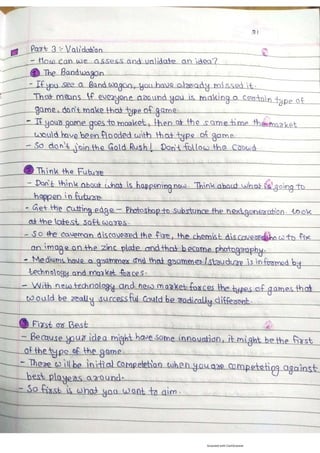 31
Part 3 :- Validation
- How can we assess and validate an idea?
1 The Bandwagon
- If you see a Bandwagon, you have already missed it.
That means if everyone around you is making a certain type of
game, don't make that type of game.
- If your game goes to market, then at the same time the market
would have been flooded with that type of game.
- So don't join the Gold Rush! Don't follow the Crowd
2 Think the Future
- Don't think about what is happening now. Think about what is going to
happen in future
- Get the Cutting edge - Photoshop to Substance the next generation. Look
at the latest softwares.
- So the caveman discovered the fire, the chemist discovered how to fix
an image on the zinc plate and that became photography.
- Mediums have a grammer and that grammer/structure is informed by
technology and market forces.
- With new technology and new market forces the types of games that
would be really successful could be radically different.
3 First or Best
- Because your idea might have some innovation, it might be the first
of the type of the game.
- There will be initial Competetion when you are competeting against
best players around.
- So first is what you want to aim.
Scanned with CamScanner